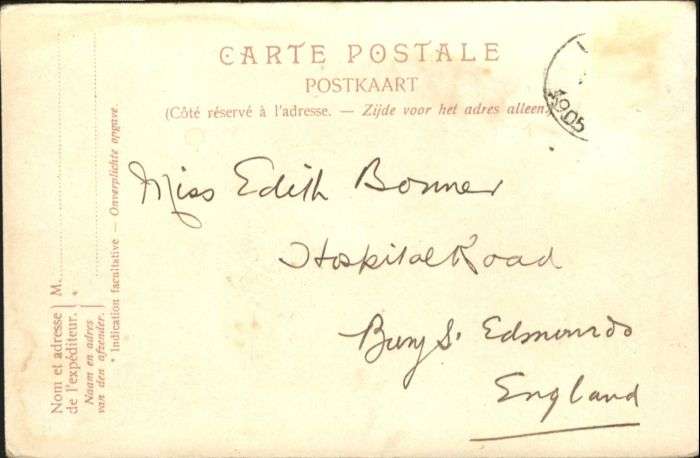 CARTE POSTALE
POSTKAART
(Côté réservé à l'adresse. — Zijde voor het adres alleen.)
1905
Miss Edith Bonner
Hospital Road
Bury S. Edmunds
England
Nom et adresse
de l'expéditeur.
M.
*
Naam en adres
van den afzender.
* Indication facultative — Onverplichte opgave